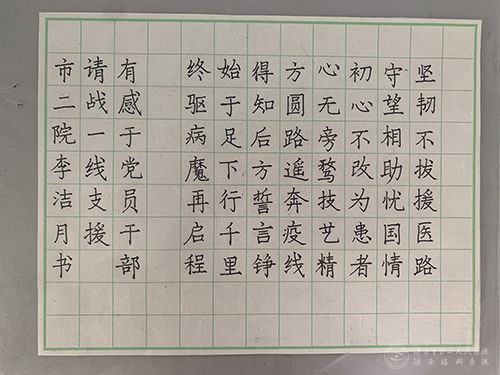 坚韧不拔援医路
守望相助忧国情
初心不改为患者
心无旁骛技艺精
方圆路遥奔疫线
得知后方誓言铮
始于足下行千里
终驱病魔再启程
有感于党员干部
请战一线支援
市二院李洁月书
济南市第二人民医院
济南眼科医院